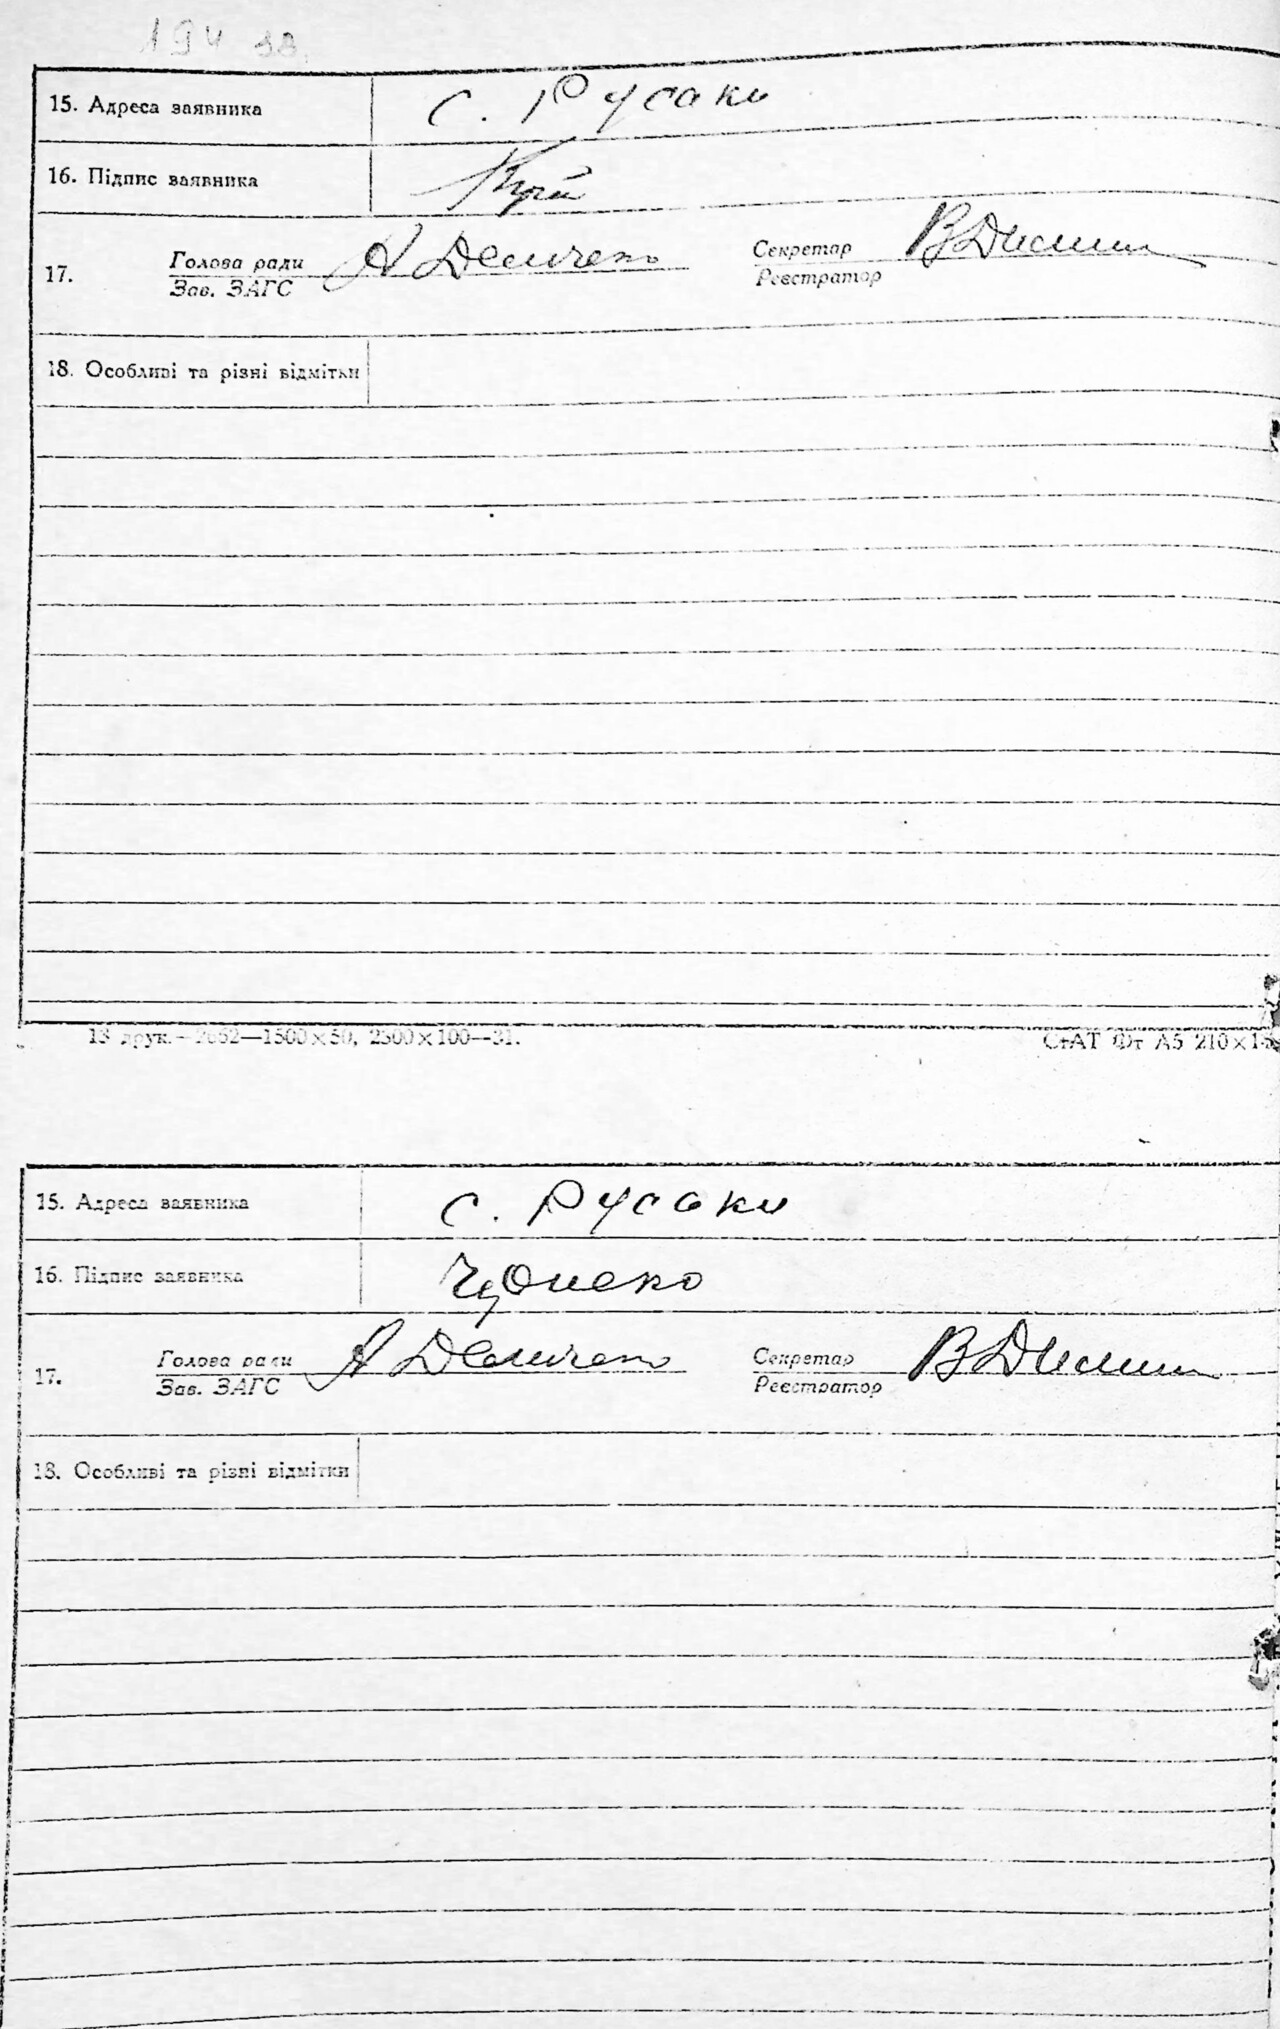 194 зв.
15. Адреса заявника с. Русаки
16. Підпис заявника
17. Голова ради Секретар
Зав. ЗАГС Реєстратор
18. Особливі та різні відмітки
13 друк.— 2652—1500×50, 2500×100—31.
СтАТ Фт А5 210×1
15. Адреса заявника с. Русаки
16. Підпис заявника
17. Голова ради Секретар
Зав. ЗАГС Реєстратор
18. Особливі та різні відмітки